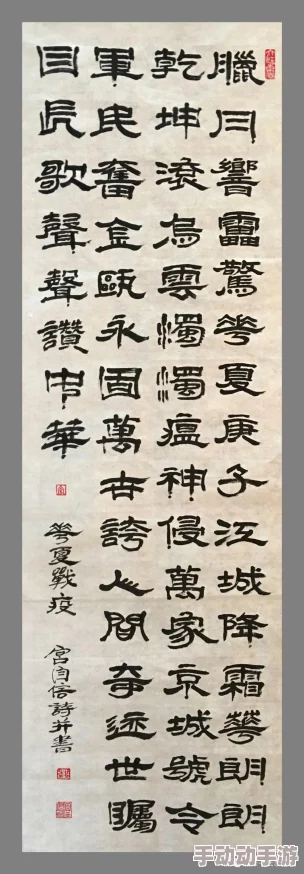 臘月響靁驚華夏庚子江城降霜華朗朗
乾坤滾烏雲濁濁瘟神侵萬家京城號令
軍民奮金甌永固萬古誇人間奇迹世矚
目歌聲聲讚中華
華夏戰疫 宮自信詩并書
手动动手游